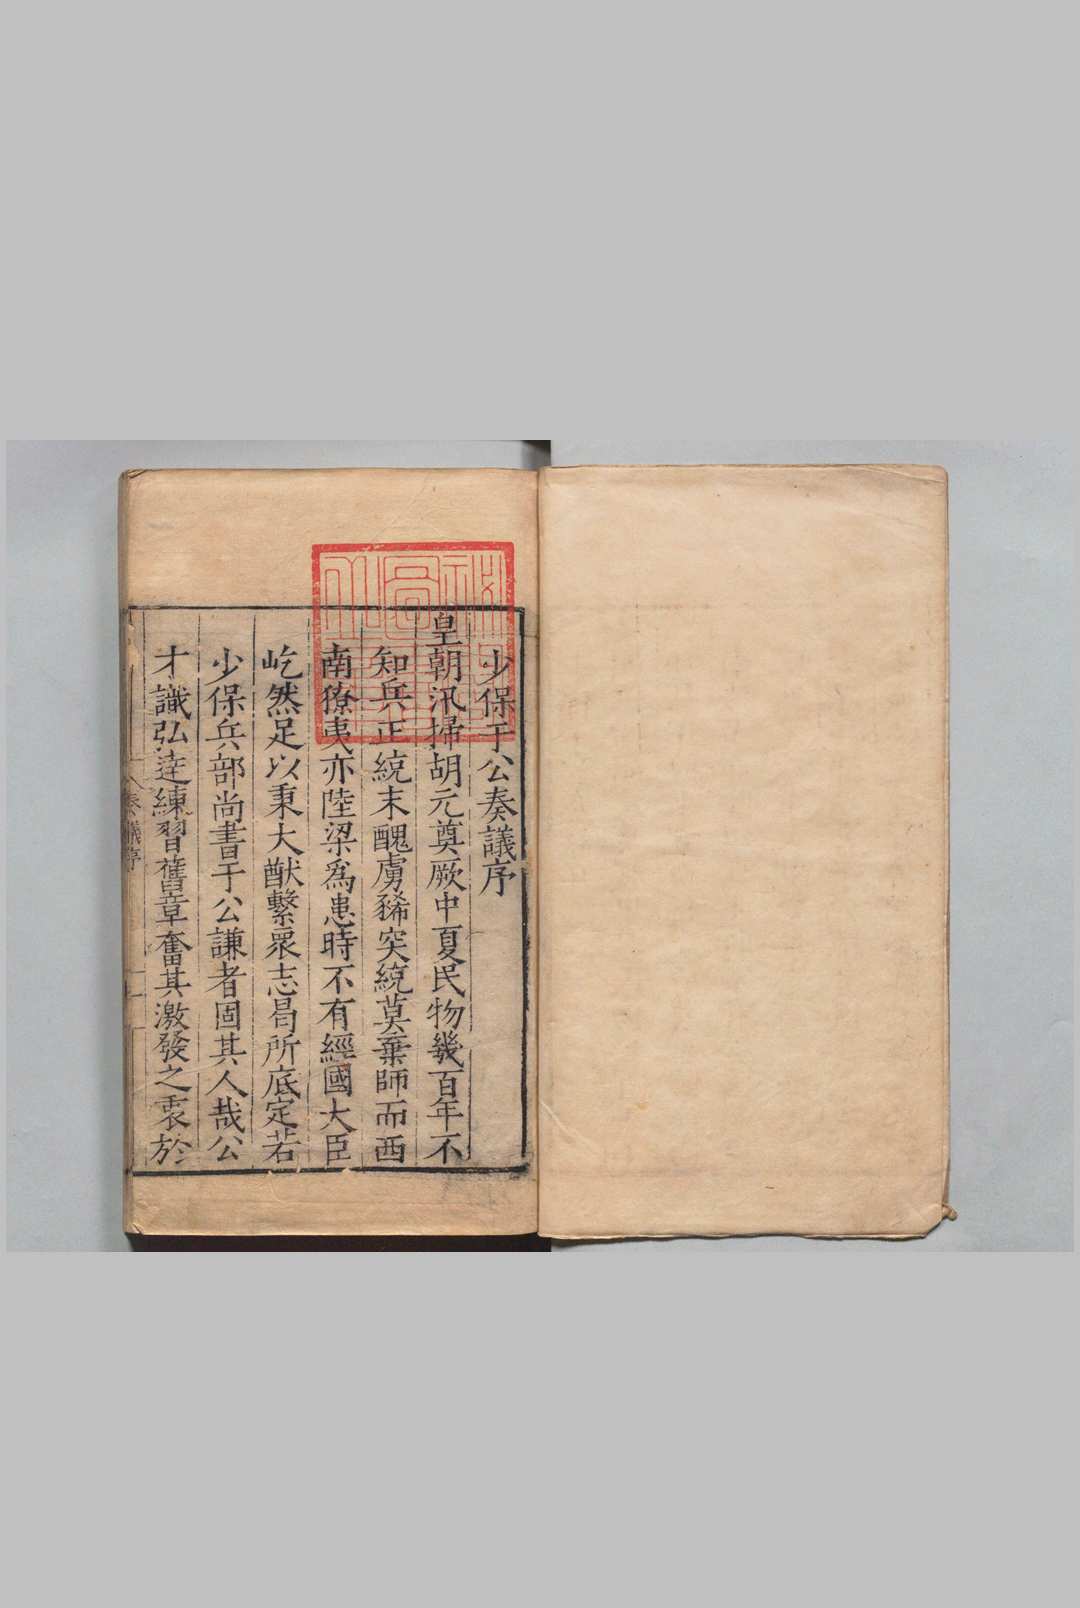 少保于公奏議序
皇朝汛掃胡元奠厥中夏民物幾百年不
知兵正統末醜虜豨突統莫棄師而西
南獠夷亦陸梁為患時不有經國大臣
屹然足以秉大猷繫眾志曷所底定若
少保兵部尚書于公謙者固其人哉公
才識弘達練習舊章奮其激發之衷於
奏議序
一